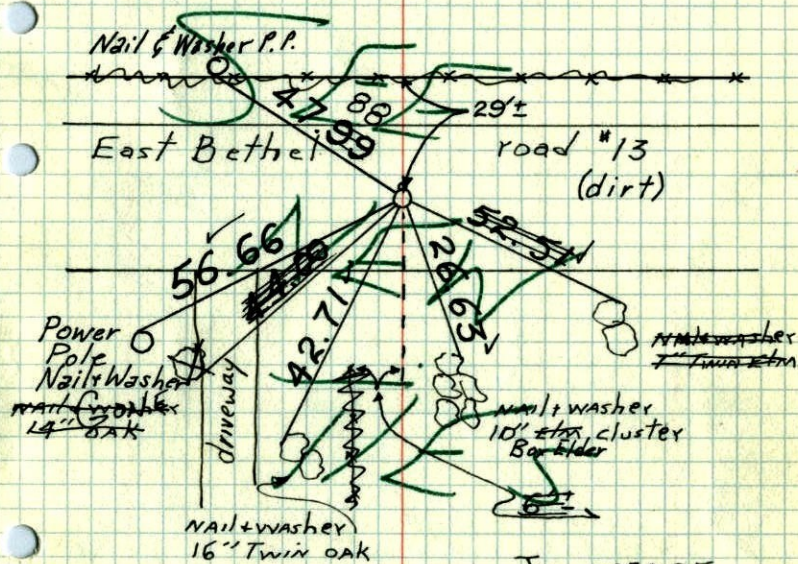 Nail & Washer P.P.
47.99
88
29'±
East Bethel road #13
(dirt)
56.66
52.51
26.63
42.71
Power
Pole
Nail + Washer
Nail + Washer
Gone
14" OAK
driveway
NAil + WAsher
7" Twin Elm
NAil + WAsher
10" Elm cluster
Box Elder
NAil + WAsher
16" Twin OAK